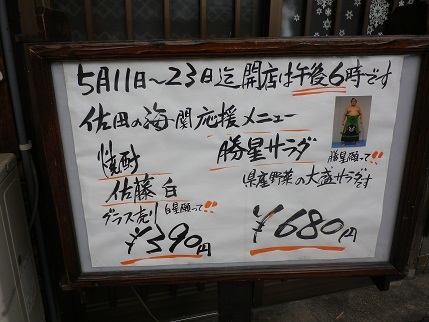 5月11日～23日迄開店は午後6時です
佐田の海関応援メニュー
焼酎
佐藤白
グラス売り
白星願って!!
¥390円
勝星サラダ
勝星願って!!
県産野菜の大盛サラダです
¥680円